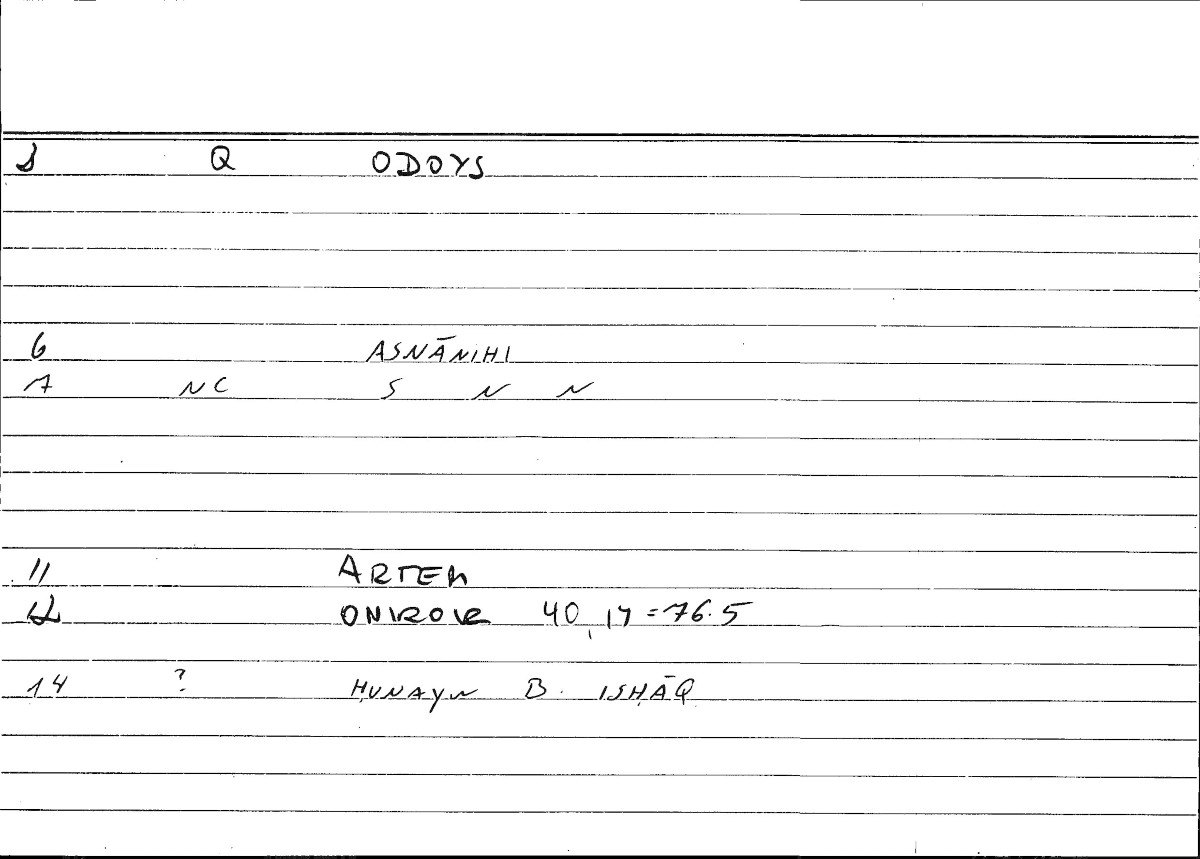 1 Q ODOYS
6 ASNĀNIHI
7 NC S N N
11 ARTEM
12 ONIROIR 40,17=76.5
14 ? ḤUNAYN B. ISḤĀQ